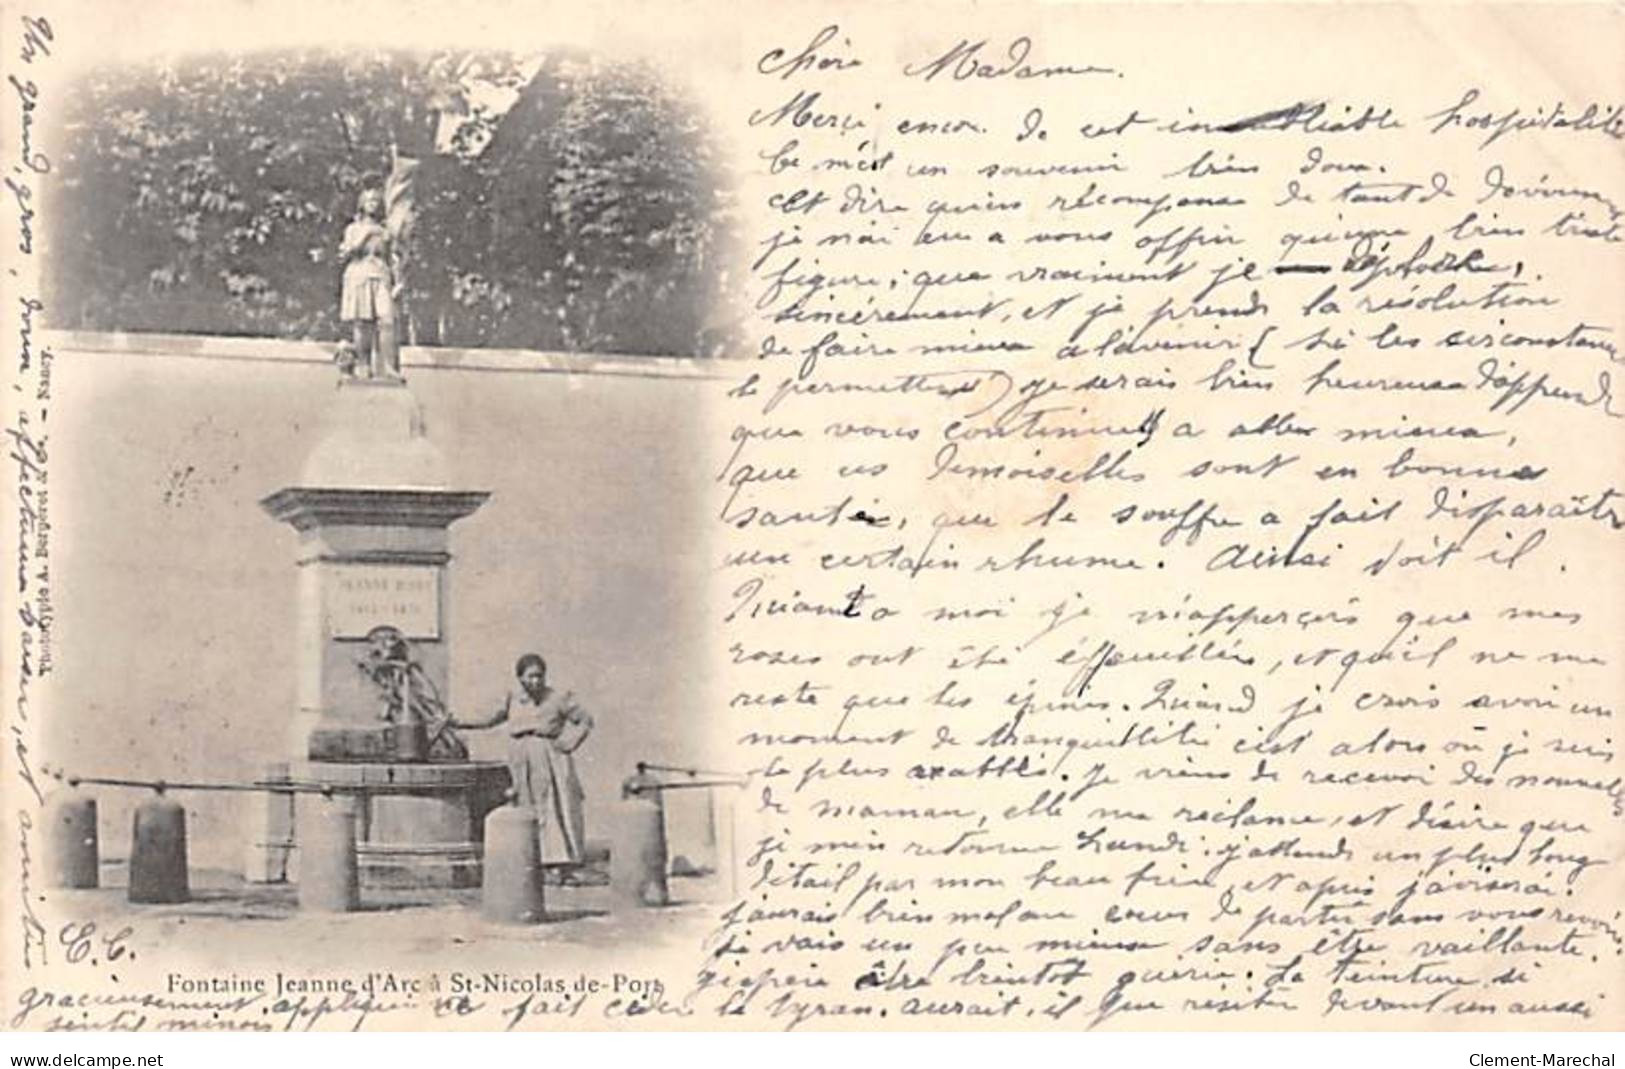 Chère Madame.
Merçi encore de cet hospitalité
Ce m'est un souvenir bien doux.
Et dire qu'en récompense de tant de
je n'ai eu a vous offrir qu'une bien triste
figure; que vraiment je déplore,
sincèrement, et je prends la résolution
de faire mieux a l'avenir (si les circonstances
le permettent) je serais bien heureuse d'apprendre
que vous continuez a aller mieux,
que ces demoiselles sont en bonne
santé, que le souffre a fait disparaître
un certain rhume. Ainsi soit il.
Quant a moi je m'apperçois que mes
roses ont été éffeuillées, et qu'il ne me
reste que les épines. Quand je crois avoir un
moment de tranquillité c'est alors où je suis
le plus. Je viens de recevoir des nouvelles
de maman, elle me réclame, et désire que
je m'en retourne Lundi. j'attends un plus long
détail par mon beau frère, et après j'aviserai.
j'aurais bien mal au cœur de partir sans vous revoir.
je vais un peu mieux sans être vaillante.
j'espère être bientot guérie. La teinture si
gracieusement appliquée fait céder le tyran. aurait-il pu résister devant un aussi
gentil minois
Un grand, gros, doux, affectueux baiser, et amitiés
E.C.
JEANNE D'ARC
1412-1431
Fontaine Jeanne d'Arc à St-Nicolas-de-Port
Phototypie A. Bergeret & Cie - Nancy.
www.delcampe.net
Clement-Marechal